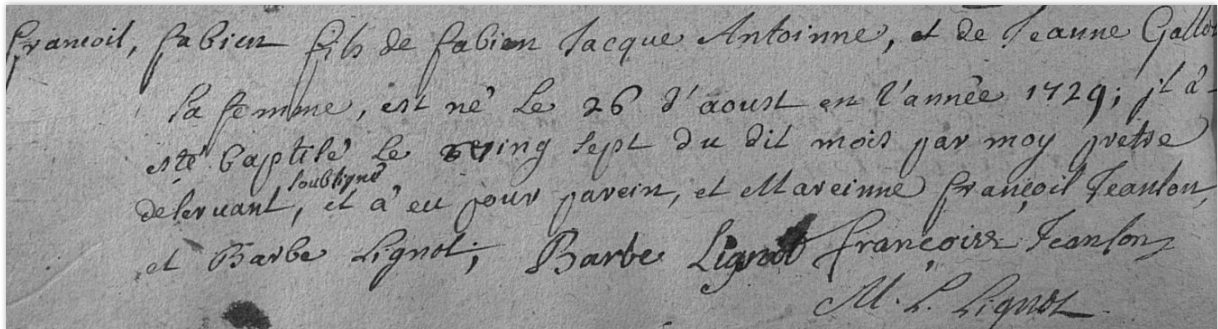 françois, fabien fils de fabien Jacque Antoinne, et de Jeanne Gallot
sa femme, est né le 26 d'aoust en l'année 1729; jl à
esté baptisé le ving sept du dit mois par moy pretre
soubsigné
deservant, et à eu pour parein, et Mareinne françois Jeanson,
et Barbe Lignot; Barbe Lignot françoiss Jeanson
M. L. Lignot